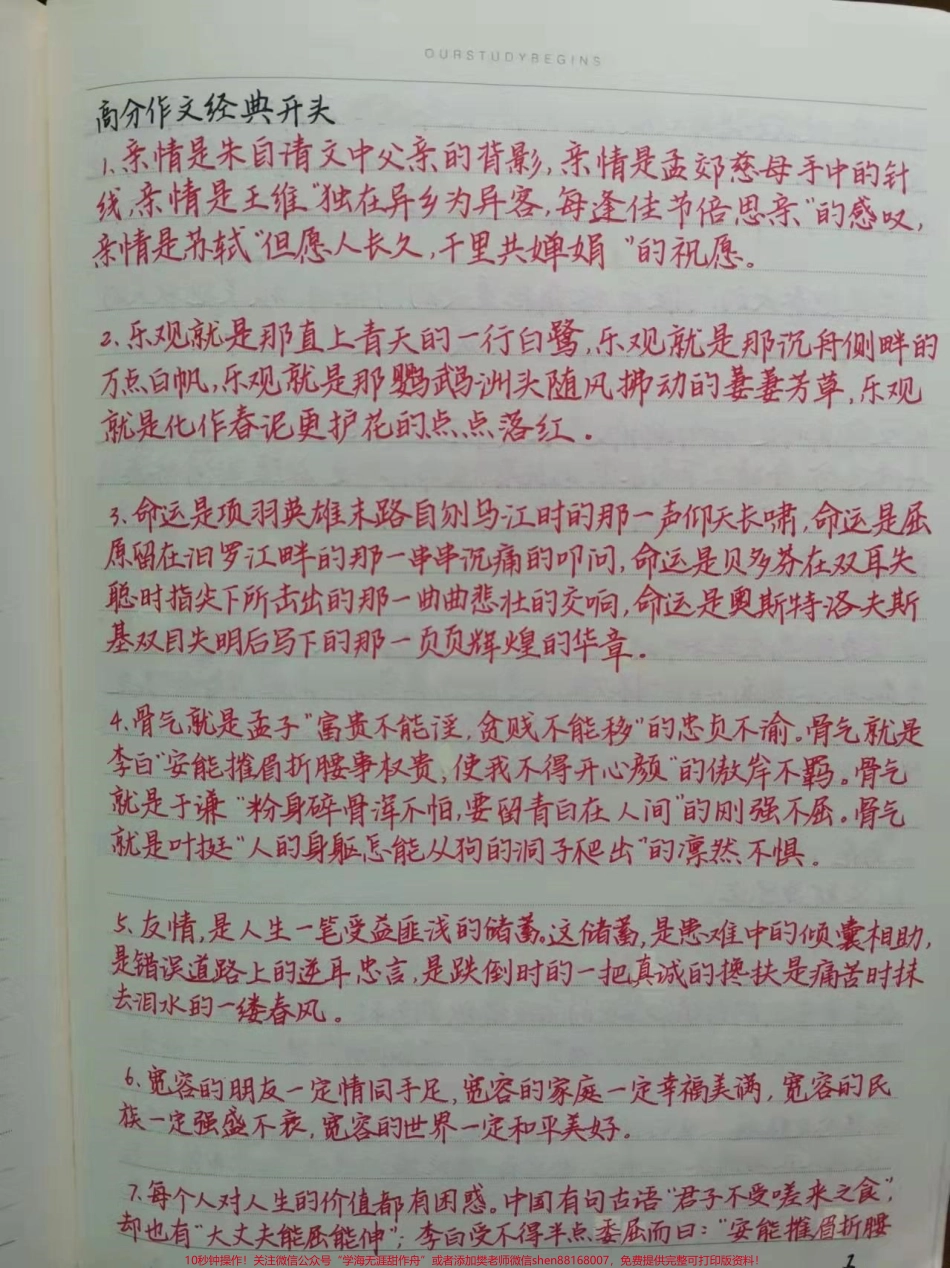 OURSTUDYBEGINS
高分作文经典开头
1、亲情是朱自清文中父亲的背影，亲情是孟郊慈母手中的针
线，亲情是王维“独在异乡为异客，每逢佳节倍思亲”的感叹，
亲情是苏轼“但愿人长久，千里共婵娟 ”的祝愿。
2、乐观就是那直上青天的一行白鹭，乐观就是那沉舟侧畔的
万点白帆，乐观就是那鹦鹉洲头随风拂动的萋萋芳草，乐观
就是化作春泥更护花的点点落红。
3、命运是项羽英雄末路自刎乌江时的那一声仰天长啸，命运是屈
原留在汨罗江畔的那一串串沉痛的叩问，命运是贝多芬在双耳失
聪时指尖下所击出的那一曲曲悲壮的交响，命运是奥斯特洛夫斯
基双目失明后写下的那一页页辉煌的华章。
4、骨气就是孟子“富贵不能淫，贫贱不能移”的忠贞不渝。骨气就是
李白“安能摧眉折腰事权贵，使我不得开心颜”的傲岸不羁。骨气
就是于谦“粉身碎骨浑不怕，要留青白在人间”的刚强不屈。骨气
就是叶挺“人的身躯怎能从狗的洞子爬出”的凛然不惧。
5、友情，是人生一笔受益匪浅的储蓄。这储蓄，是患难中的倾囊相助，
是错误道路上的逆耳忠言，是跌倒时的一把真诚的搀扶是痛苦时抹
去泪水的一缕春风。
6、宽容的朋友一定情同手足，宽容的家庭一定幸福美满，宽容的民
族一定强盛不衰，宽容的世界一定和平美好。
7、每个人对人生的价值都有困惑。中国有句古语“君子不受嗟来之食”，
却也有“大丈夫能屈能伸”；李白受不得半点委屈而曰：“安能摧眉折腰
10秒钟操作！关注微信公众号“学海无涯甜作舟”或者添加樊老师微信shen88168007，免费提供完整可打印版资料！
1